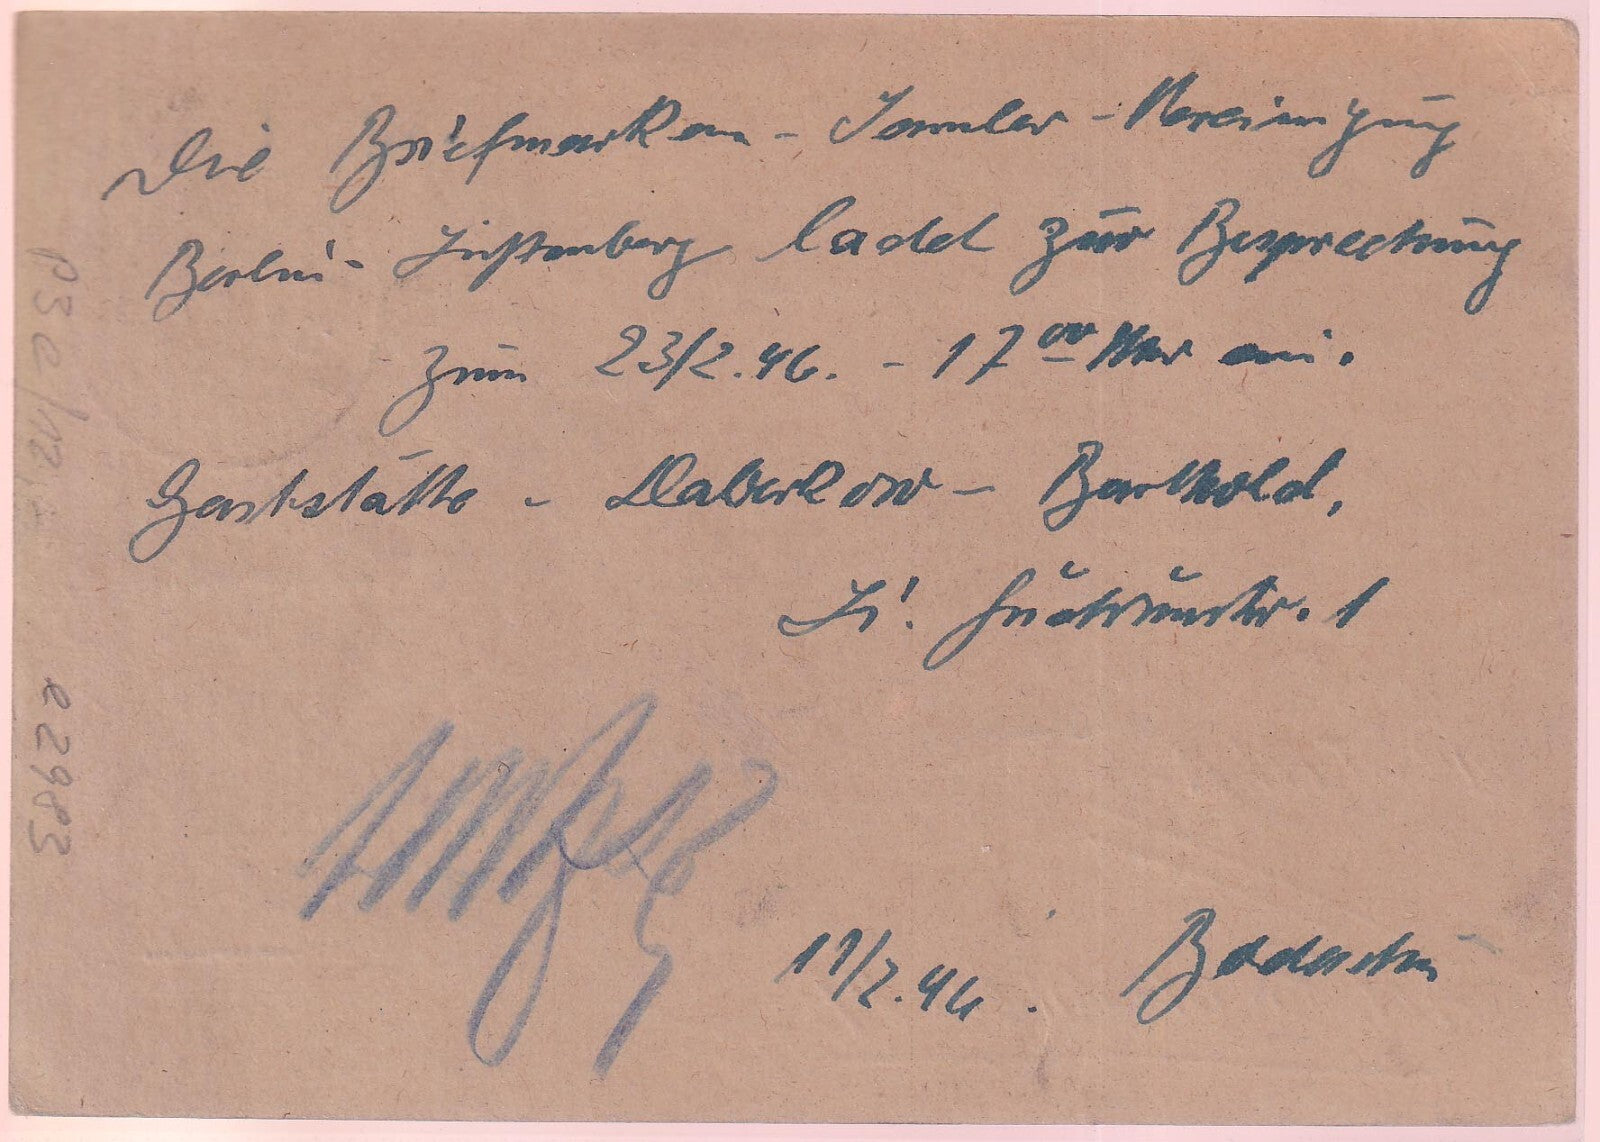 Die Briefmarken - Samler - Vereinigung
Berlin - Lichtenberg ladet zur Besprechung
zum 23/2.46. - 17 00 Uhr ein.
Gaststätte - Daberkow - Barthold,
Li.
1
11/2.46.
P3c/12
22983